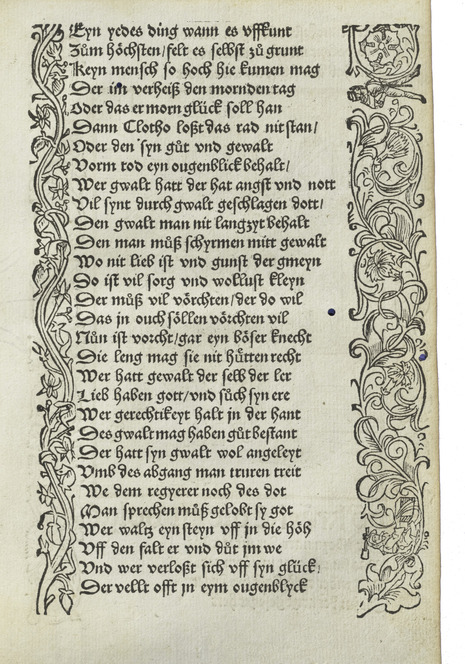 Eyn yedes ding wann es vffkunt
Zům höchsten/ felt es selbst zů grunt
Keyn mensch so hoch hie kumen mag
Der im verheiß den mornden tag
Oder das er morn glück soll han
Dann Clotho loßt das rad nit stan/
Oder den syn gůt vnd gewalt
Vorm tod eyn ougenblick behalt/
Wer gwalt hatt der hat angst vnd nott
Vil synt durch gwalt geschlagen dott/
Den gwalt man nit langzyt behalt
Den man můß schyrmen mitt gewalt
Wo nit lieb ist vnd gunst der gmeyn
Do ist vil sorg vnd wollust kleyn
Der můß vil vörchten/ der do wil
Das jn ouch söllen vörchten vil
Nůn ist vorcht/ gar eyn böser knecht
Die leng mag sie nit hütten recht
Wer hatt gewalt der selb der ler
Lieb haben gott/ vnd sůch syn ere
Wer gerechtikeyt halt jn der hant
Des gwalt mag haben gůt bestant
Der hatt syn gwalt wol angeleyt
Vmb des abgang man truren treit
We dem regyerer noch des dot
Man sprechen můß gelobt sy got
Wer waltz eyn steyn vff jn die höh
Vff den falt er vnd důt jm we
Vnd wer verloßt sich vff syn glück/
Der vellt offt jn eym ougenblyck